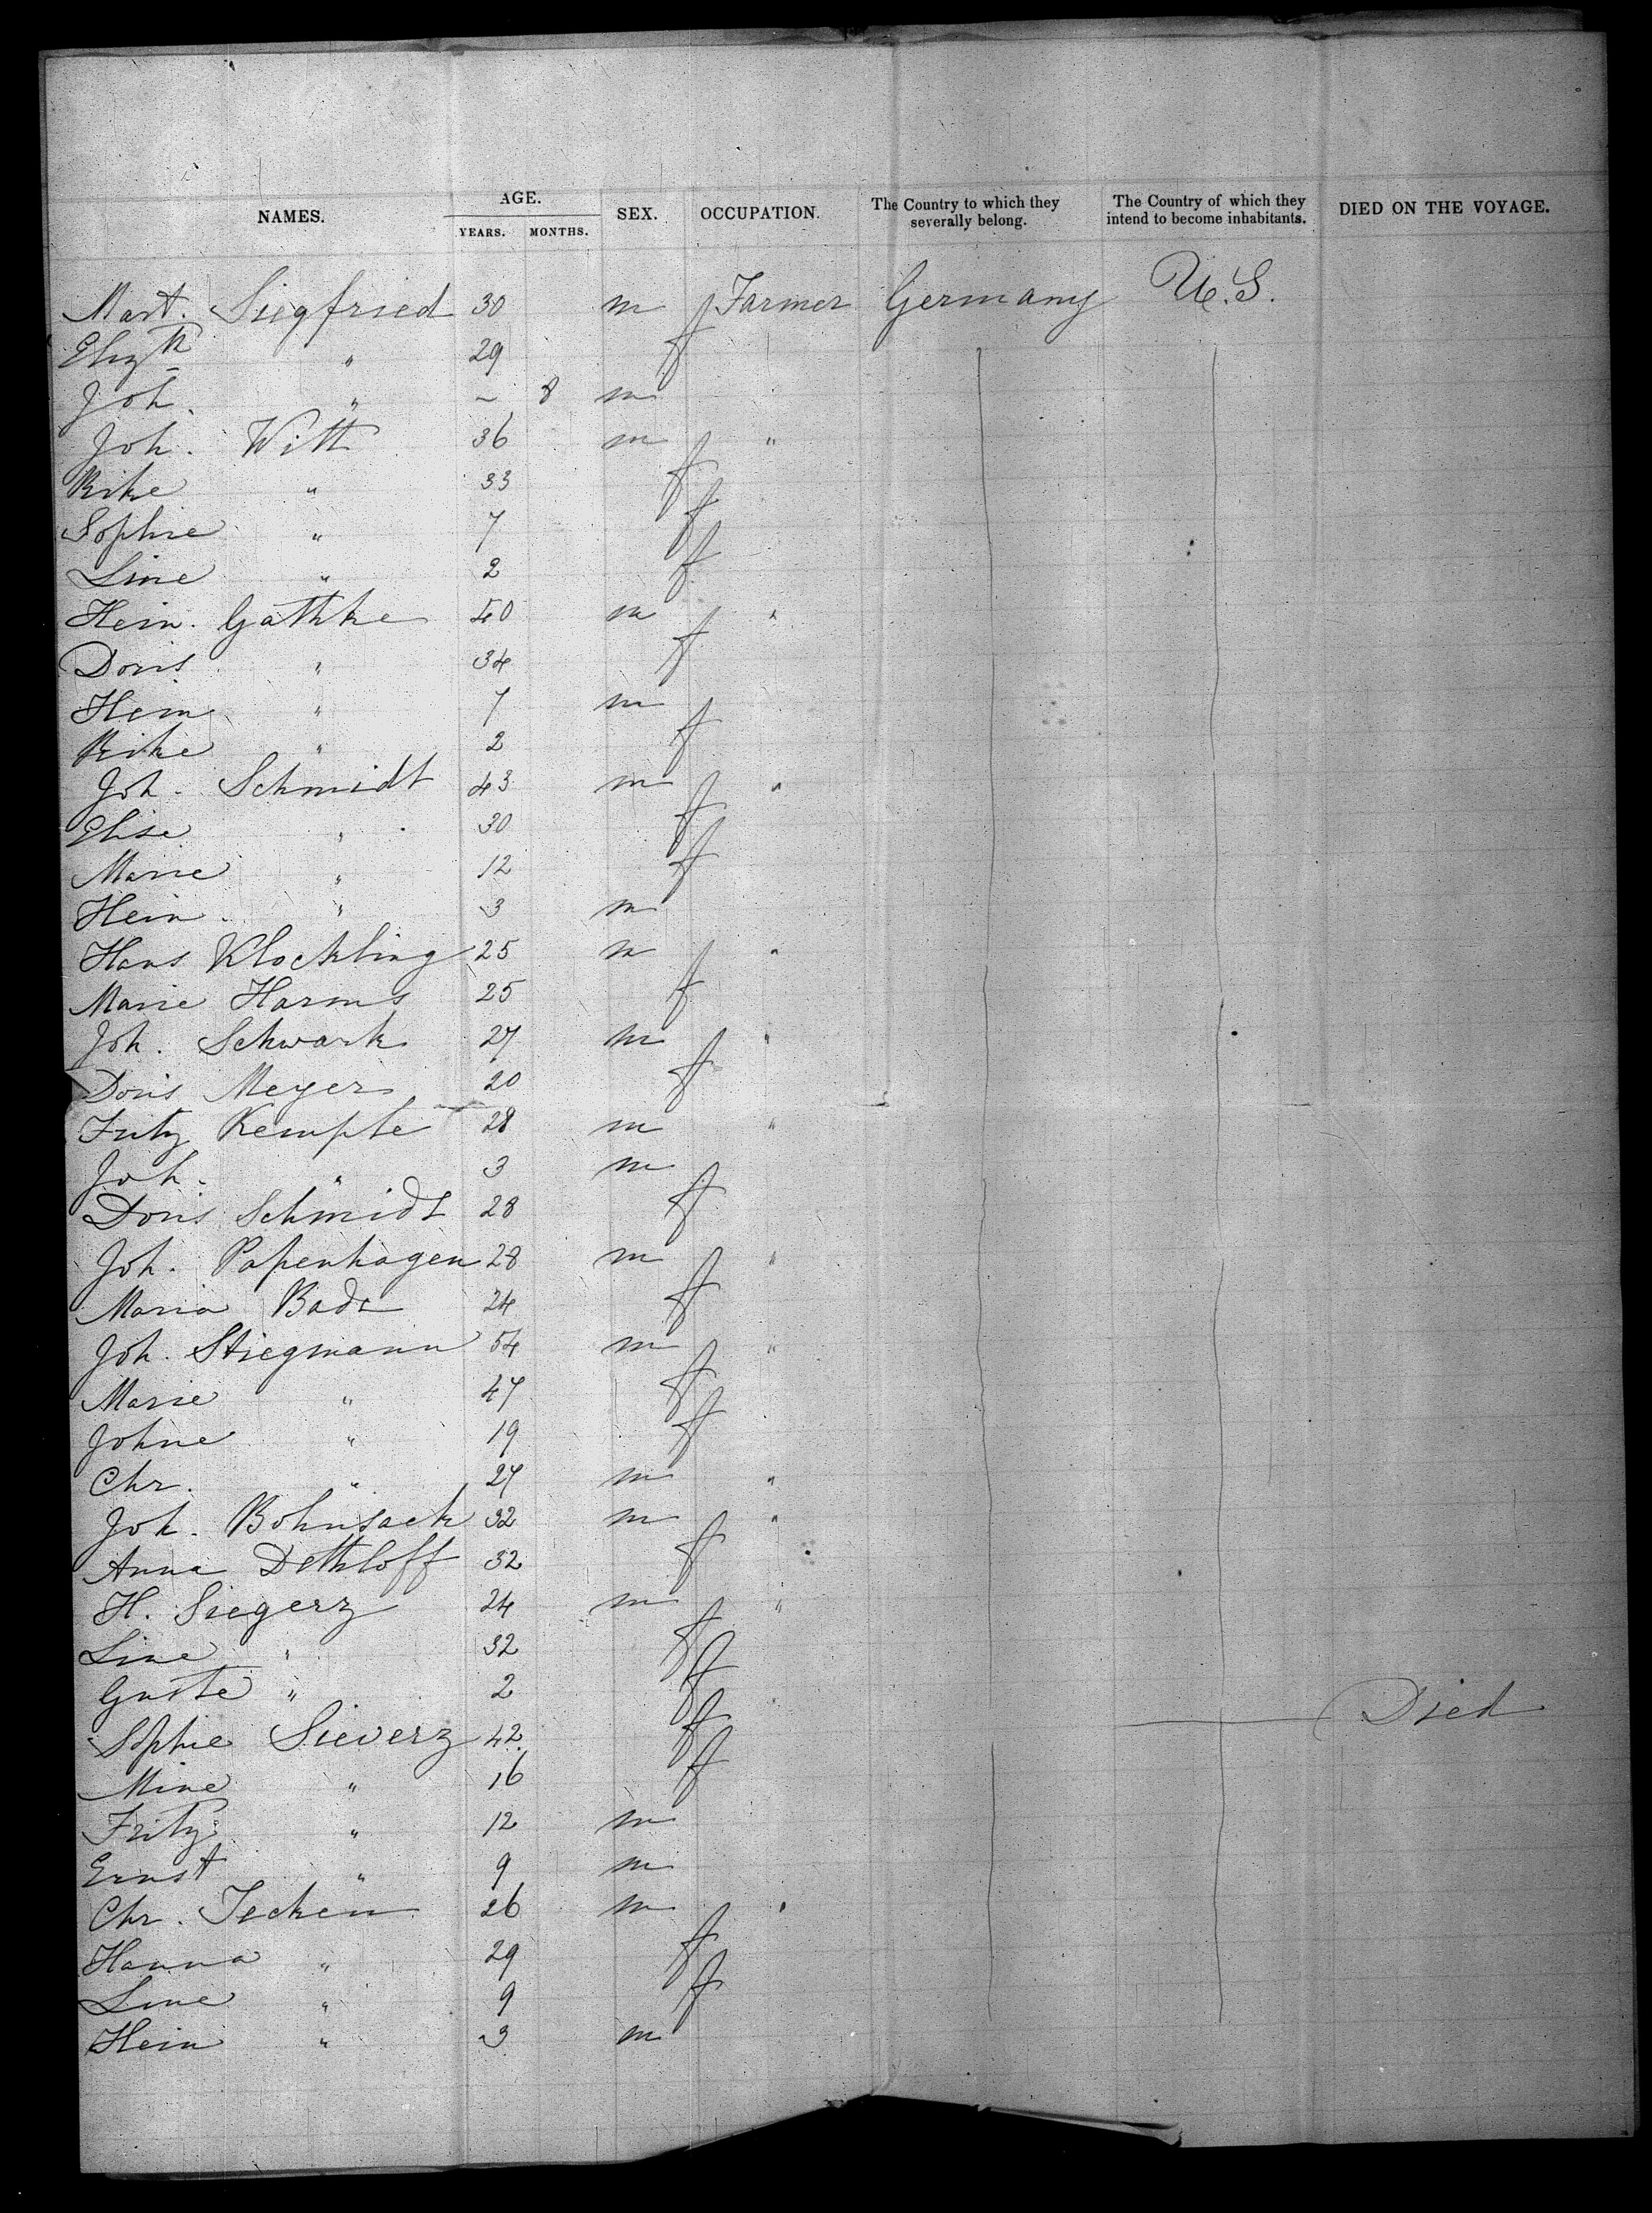 NAMES. AGE. YEARS. MONTHS. SEX. OCCUPATION. The Country to which they severally belong. The Country of which they intend to become inhabitants. DIED ON THE VOYAGE.
Mart. Siegfried 30 m Farmer Germany U.S.
Elizth " 29 f
Joh. " ~ 8 m
Joh. Witt 36 m "
Rike " 33 f
Sophie " 7 f
Line " 2 f
Hein. Gathke 40 m "
Doris " 34 f
Hein " 7 m
Rike " 2 f
Joh. Schmidt 43 m "
Elise " 30 f
Marie " 12 f
Hein. " 3 m
Hans Klockling 25 m "
Marie Harms 25 f
Joh. Schwark 27 m "
Doris Meyer 20 f
Fritz Kempte 28 m "
Joh. " 3 m
Doris Schmidt 28 f
Joh. Papenhagen 28 m "
Maria Bade 24 f
Joh. Stiegmann 54 m "
Marie " 47 f
Johne " 19 f
Chr. " 27 m "
Joh. Bohnsack 32 m "
Anna Dethloff 32 f
H. Siegerz 24 m "
Line " 32 f
Guste " 2 f
Sophie Sieverz 42 f Died
Mine " 16 f
Fritz " 12 m
Ernst " 9 m
Chr. Jecken 26 m "
Hanna " 29 f
Line " 9 f
Hein " 3 m